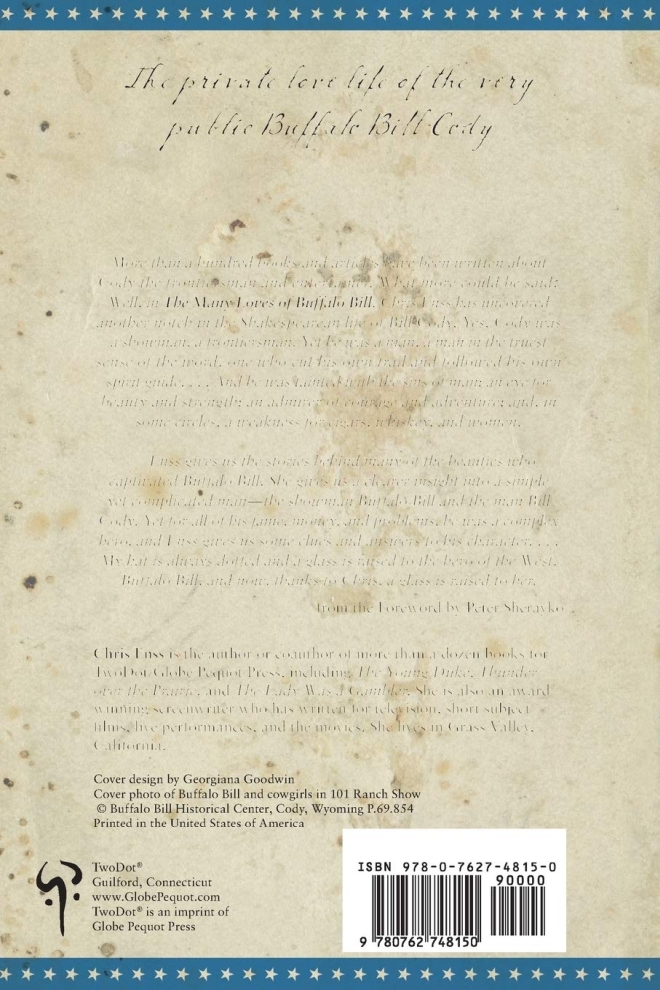 The private love life of the very
public Buffalo Bill Cody
More than a hundred books and articles have been written about
Cody the frontiersman and entertainer. What more could be said?
Well, in The Many Loves of Buffalo Bill, Chris Enss has uncovered
another notch in the Shakespearean life of Bill Cody. Yes, Cody was
a showman, a frontiersman. Yet he was a man, a man in the truest
sense of the word, one who cut his own trail and followed his own
spirit guide. . . . And he was tainted with the sins of man: an eye for
beauty and strength; an admirer of courage and adventure; and, in
some circles, a weakness for cigars, whiskey, and women.
Enss gives us the stories behind many of the beauties who
captivated Buffalo Bill. She gives us a clearer insight into a simple,
yet complicated man—the showman Buffalo Bill and the man Bill
Cody. Yet for all of his fame, money, and problems, he was a complex
hero, and Enss gives us some clues and answers to his character. . . .
My hat is always doffed and a glass is raised to the hero of the West,
Buffalo Bill, and now, thanks to Chris, a glass is raised to her.
from the Foreword by Peter Sherayko
Chris Enss is the author or coauthor of more than a dozen books for
TwoDot/Globe Pequot Press, including The Young Duke, Thunder
over the Prairie, and The Lady Was a Gambler. She is also an award
winning screenwriter who has written for television, short subject
films, live performances, and the movies. She lives in Grass Valley,
California.
Cover design by Georgiana Goodwin
Cover photo of Buffalo Bill and cowgirls in 101 Ranch Show
© Buffalo Bill Historical Center, Cody, Wyoming P.69.854
Printed in the United States of America
TwoDot®
Guilford, Connecticut
www.GlobePequot.com
TwoDot® is an imprint of
Globe Pequot Press
ISBN 978-0-7627-4815-0
90000
9 780762 748150